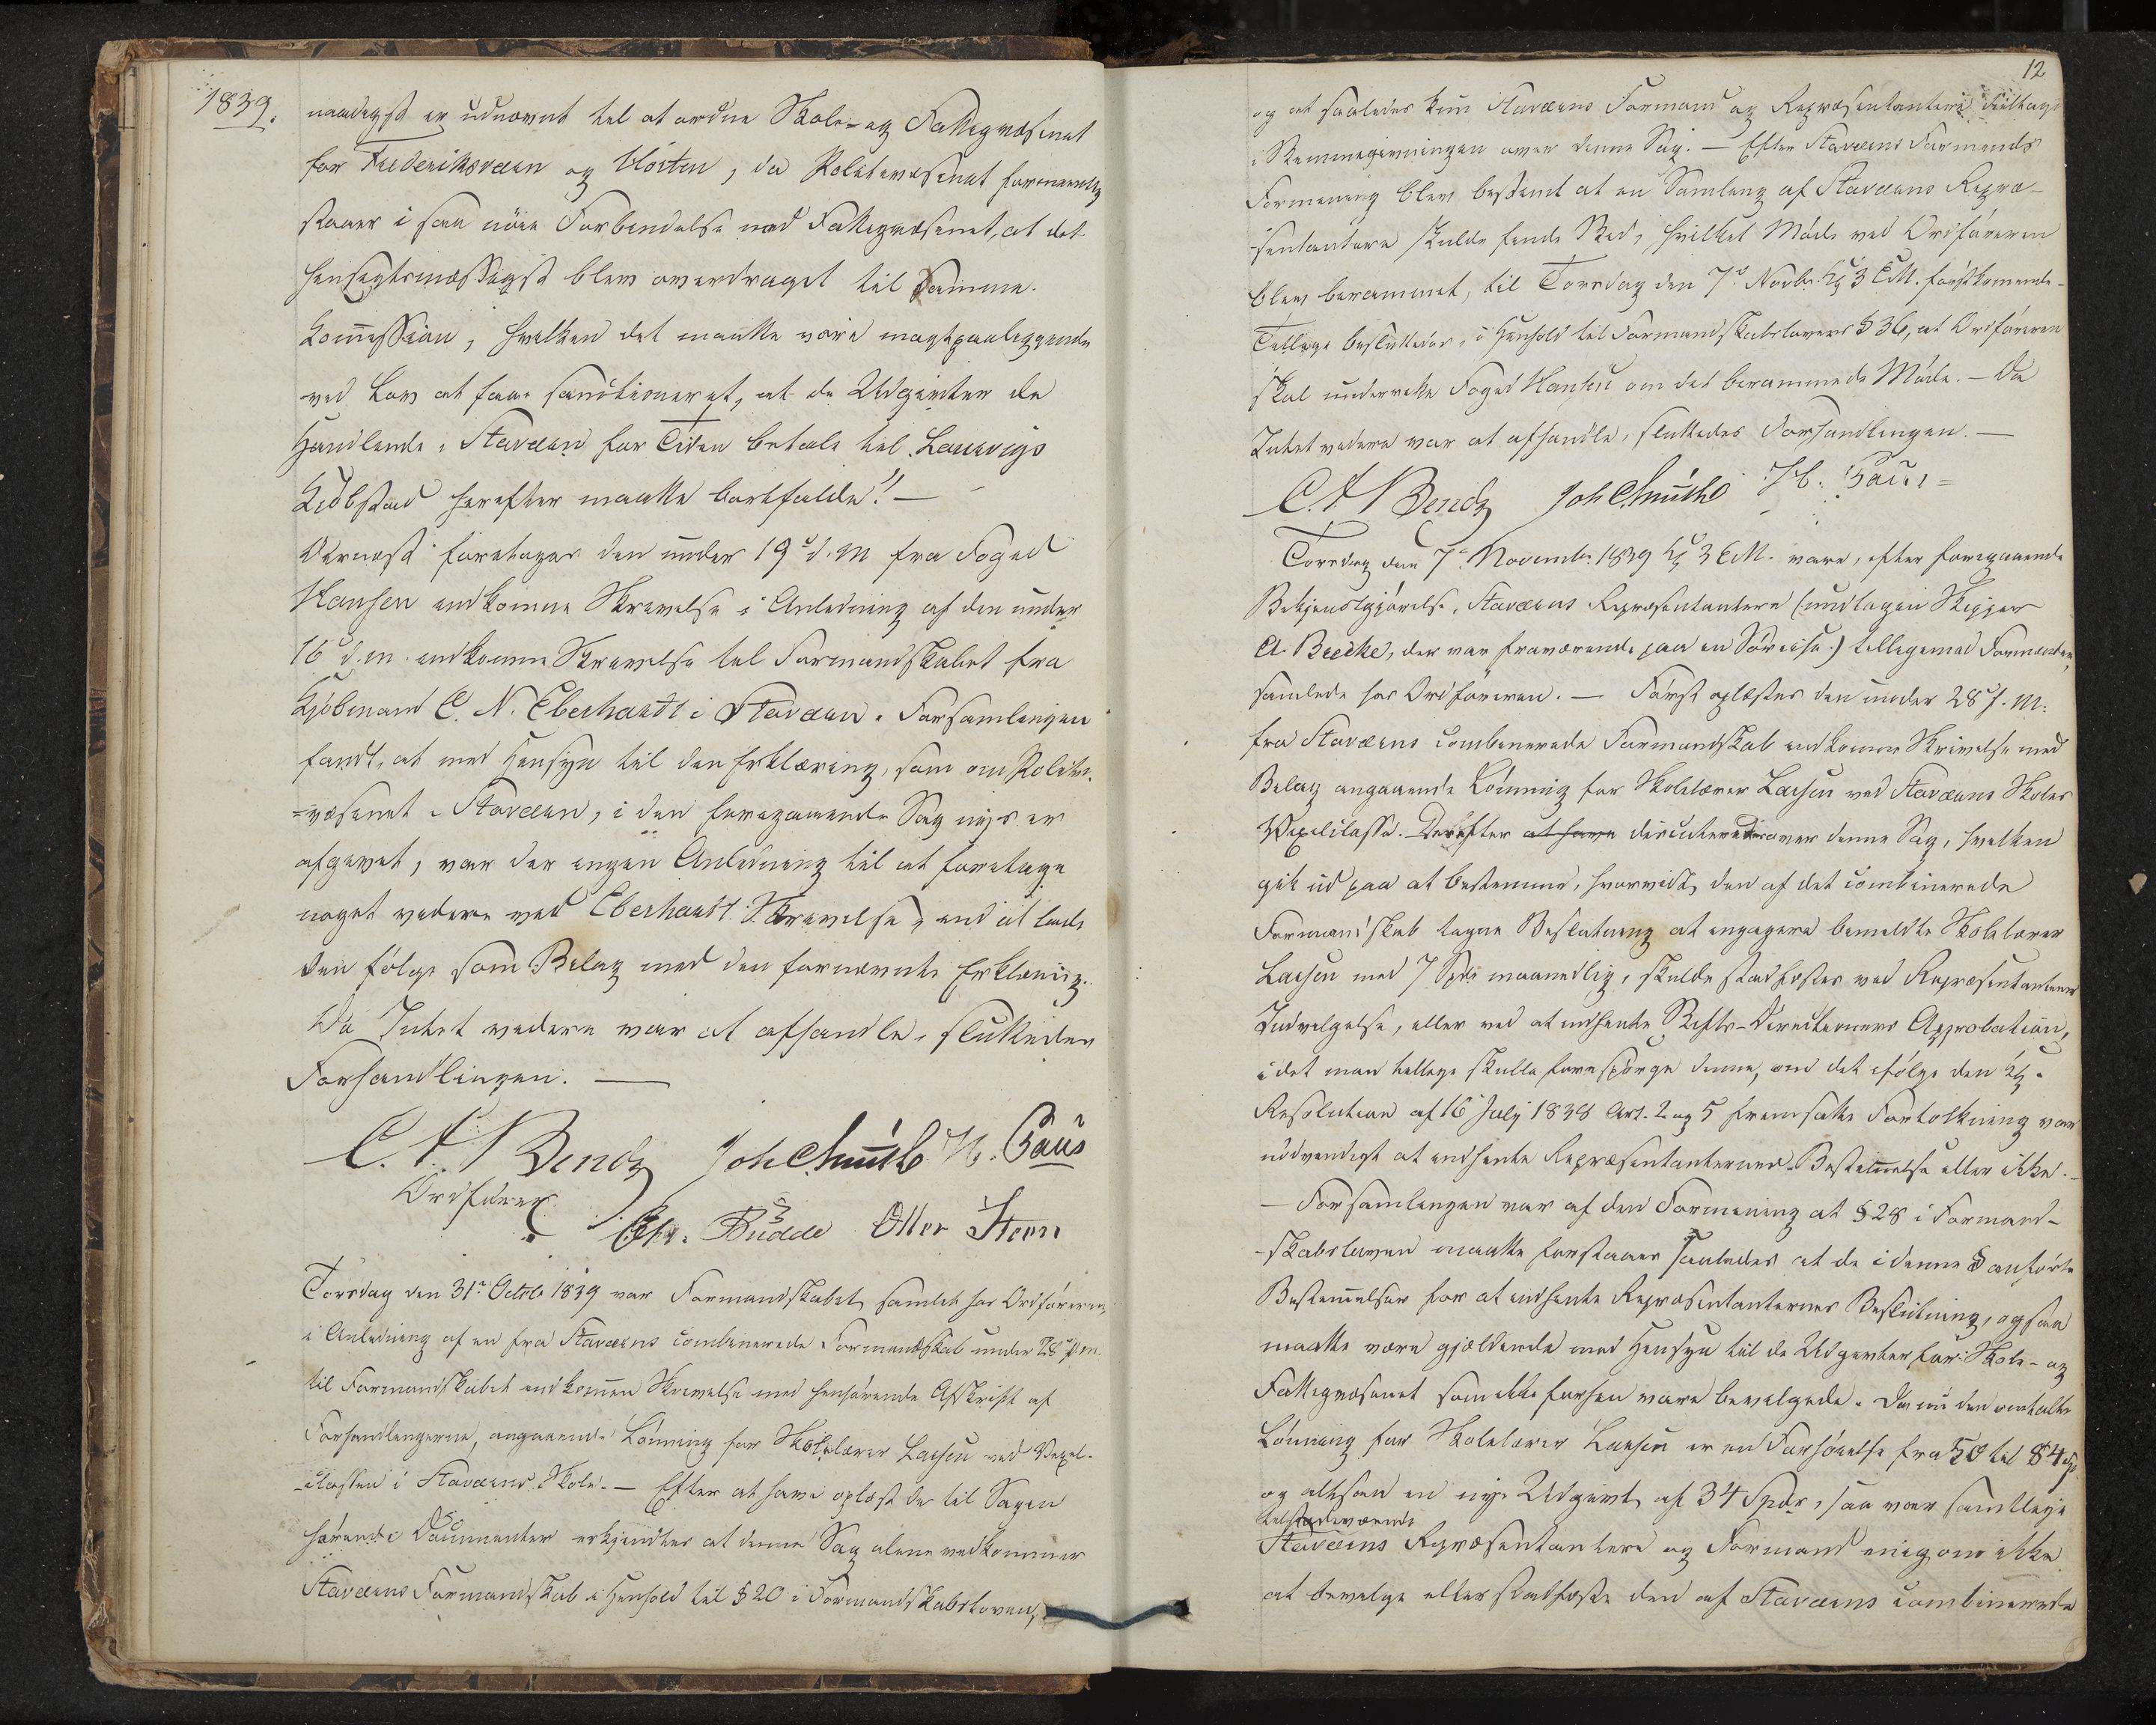 1839.
naadigst er udnævnt til at ordne Skole- og Fattigvæsenet
for Frederiksværn og Horten, da Politivæsenet formeentlig
staaer i saa nöie Forbindelse med Fattigvæsenet, at det
hensigtsmæssigst blev overdraget til Samme
Kommission, hvilken det maatte være magtpaaliggende
ved Lov at faae sanctioneret, at de Udgivter de
Handlende i Staværn for Tiden betale til Laurvigs
Kiöbstad herefter maatte bortfalde." —
Dernæst foretoges den under 19d d. M fra Foged
Hansen indkomne Skrivelse i Anledning af den under
16d d. m. indkomne Skrivelse til Formandskabet fra
Kjöbmand C. N. Eberhardt i Staværn. Forsamlingen
fandt, at med Hensyn til den Erklæring, som om Politi-
-væsenet i Staværn, i den foregaaende Sag nys er
afgivet, var der ingen Anledning til at foretage
noget videre ved Eberhardt Skrivelse, end at lade
den fölge som Bilag med den fornævnte Erklæring.
Da Intet videre var at afhandle, sluttedes
Forhandlingen. —
C. F. Bendz Joh Chruth H. Paus
Ordförer
Chr. Budde Oller Steen
Torsdag den 31te Octbr 1839 var Formandskabet samlet hos Ordföreren,
i Anledning af en fra Staværns combinerede Formandskab under 28d d. m.
til Formandskabet indkommen Skrivelse med henhørende Afskrift af
Forhandlingerne, angaaende Lönning for Skolelærer Larsen ved Vexel-
-classen i Staværns Skole. — Efter at have oplæst de til Sagen
hørende Documenter erkjendtes at denne Sag alene vedkommer
Staværns Formandskab i Henhold til § 20 i Formandskabsloven,
12
og at saaledes kun Staværns Formand og Repræsentantere deeltage
i Stemmegivningen over denne Sag. — Efter Staværns Formands
Formening blev bestemt at en Samling af Staværns Repræ-
-sentantere skulde finde Sted, hvilket Möde ved Ordföreren
blev berammet, til Torsdag den 7de Novbr. Kl 3 E.M. förstkommende.
Tillige besluttedes, i Henhold til Formandskabslovens § 36, at Ordföreren
skal underrette Foged Hansen om det berammede Möde. — Da
Intet videre var at afhandle, sluttedes Forhandlingen. —
C. F. Bendz Joh Chruth H. Paus
Torsdag den 7de Novembr. 1839 Kl 3 E.M. vare, efter foregaaende
Bekjendtgjörelse, Staværns Repræsentantere (undtagen Skipper
A. Beecke, der var fraværende paa en Söreise.) tilligemed Formænd
samlede hos Ordföreren. — Först oplæstes den under 28d f. M.
fra Staværns combinerede Formandskab indkomne Skrivelse med
Bilag angaaende Lönning for Skolelærer Larsen ved Staværns Skoles
Vexelclasse. Derefter at have discuteredes over denne Sag, hvilken
gik ud paa at bestemme, hvorvidt den af det combinerede
Formandskab tagne Beslutning at engagere bemeldte Skolelærer
Larsen med 7 Spdr maanedlig, skulde stadfæstes ved Repræsentanternes
Indvilgelse, eller ved at indhente Stifts-Directionens Approbation,
idet man tillige skulle forespörge denne, om det ifölge den Kg.
Resolution af 16 July 1838 Art. 2 og 5 fremsatte Fortolkning var
nödvendigt at indhente Repræsentanternes Bestemmelse eller ikke. —
— Forsamlingen var af den Formening at § 28 i Formand-
-skabsloven maatte forstaaes saaledes at de i denne § anförte
Bestemmelser for at indhente Repræsentanternes Beslutning, ogsaa
maatte være gjældende med Hensyn til de Udgivter for Skole- og
Fattigvæsenet som ikke forhen vare bevilgede. Da nu den omtalte
Lönning for Skolelærer Larsen er en Forhöielse fra 50 til 84 Spd
og altsaa en nye Udgivt af 34 Spdr, saa var samtlige
tilstædeværende
Staværns Repræsentantere og Formand enig om ikke
at bevilge eller stadfæste den af Staværns combinerede